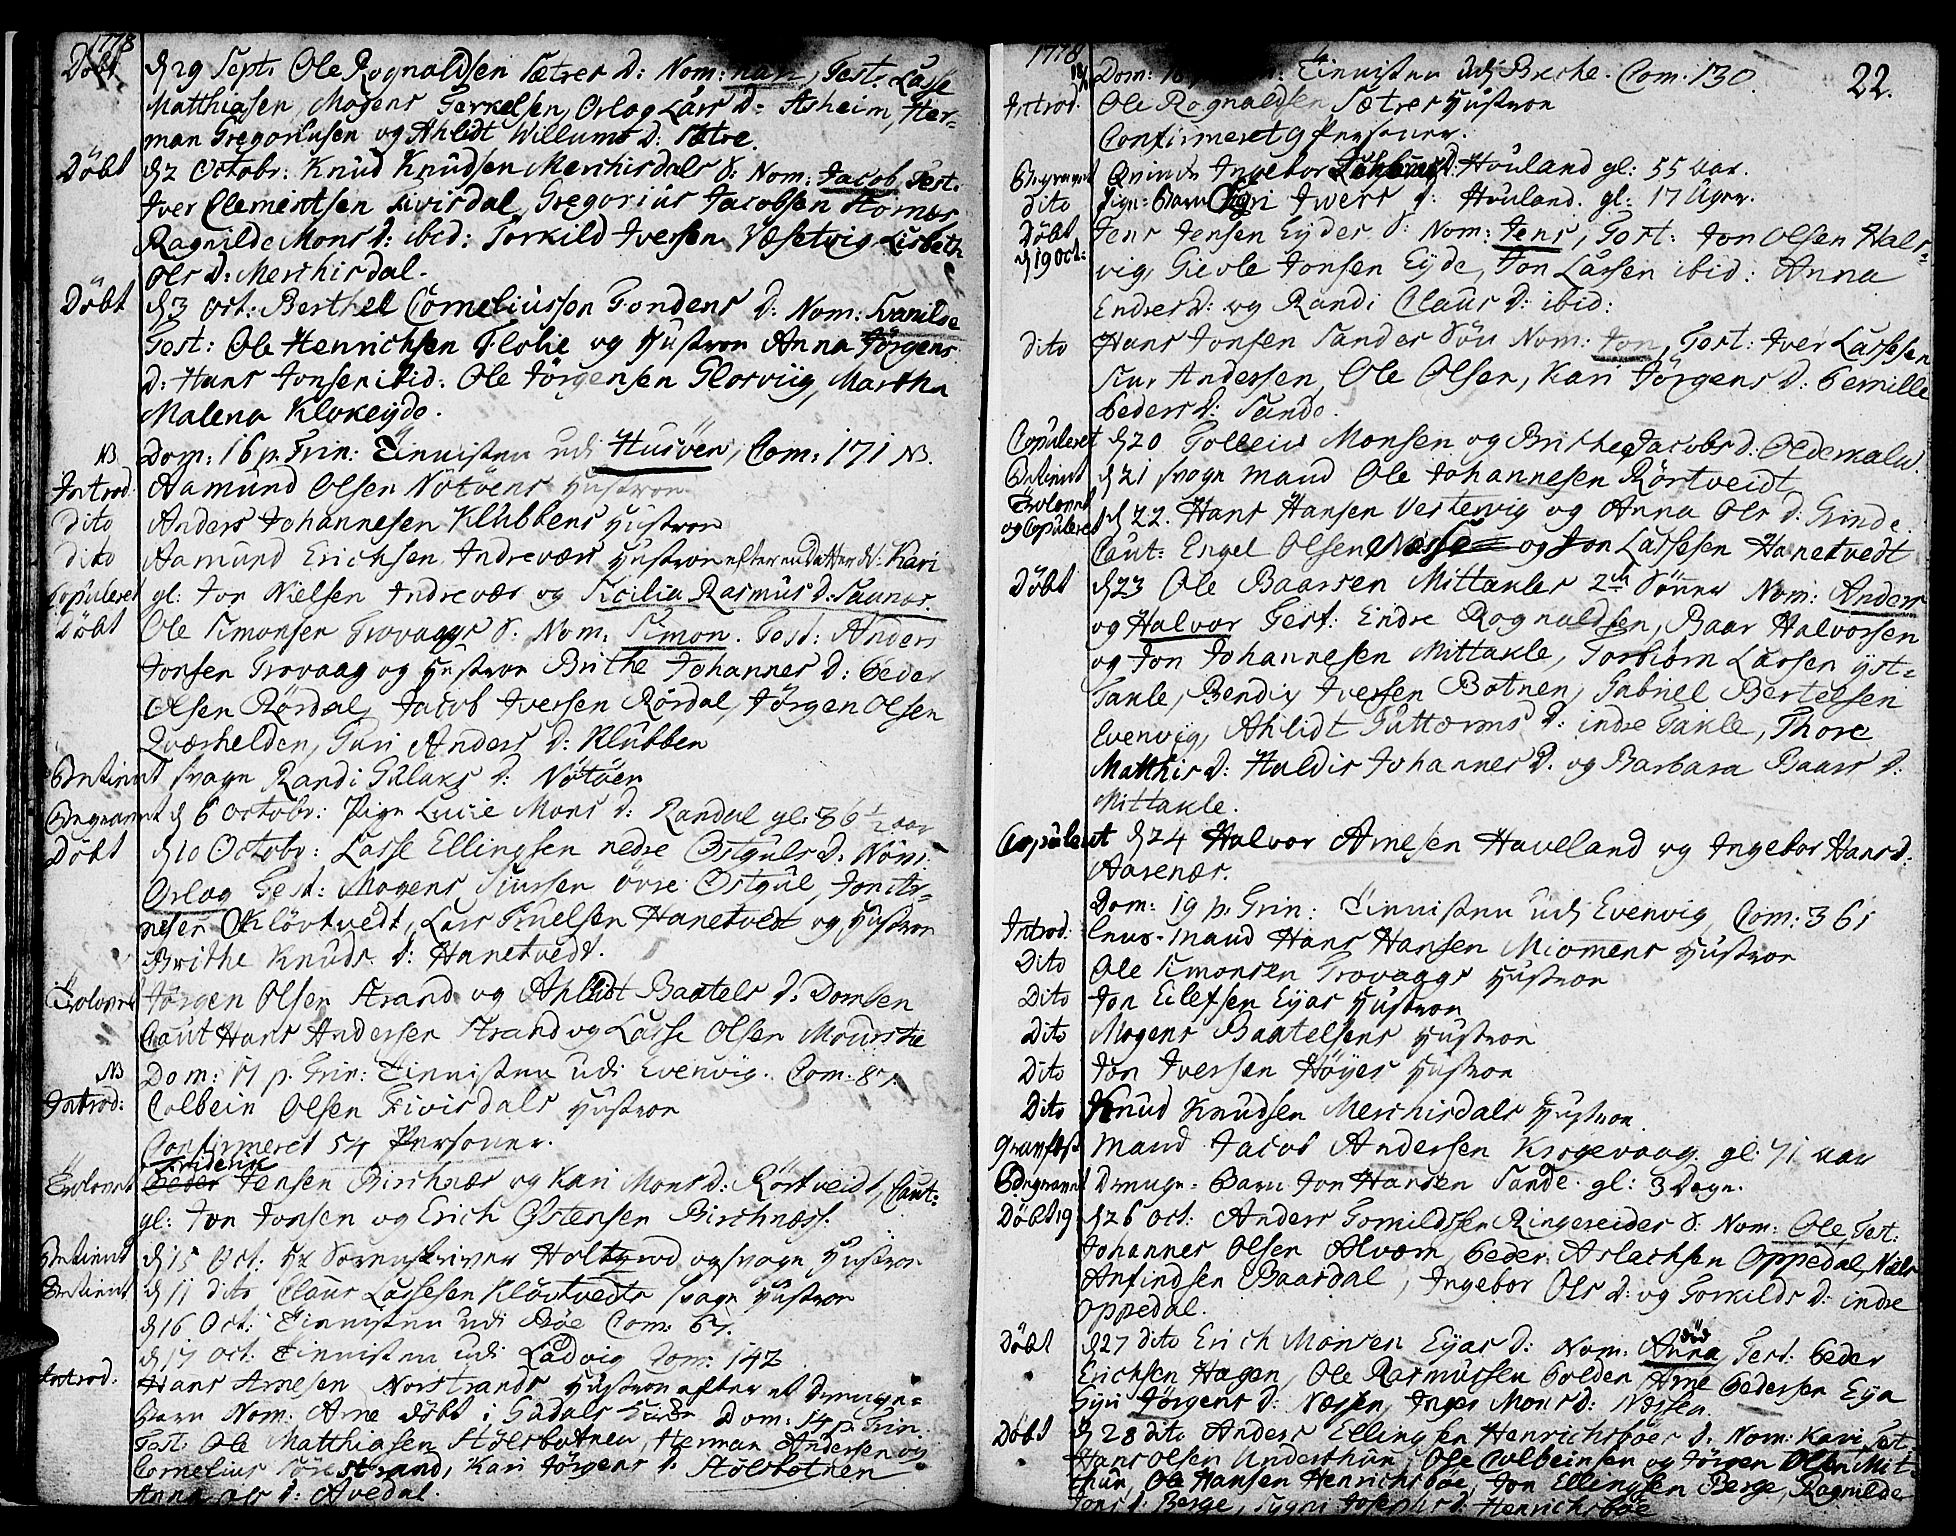 1778
Döbt d 29 Sept. Ole Rognaldsen Sætres D: Nom: Test. Lasse
Matthiasen, Mogens Terkelsen, Orlog Lars D: Asheim, Her=
man Gregoriusen og Ahlidt Willums D: Sætre.
Döbt d 2 Octobr: Knud Knudsen Merchisdals S: Nom: Jacob Test.
Iver Clementsen Fivisdal, Gregorius Jacobsen
Ragnilde Mons D: ibid: Torkild Iversen Væsetvig Lisbeth
Ols D: Merchisdal.
Döbt d 3 Oct: Berthel Corneliussøn Tondens D: Nom:
Test: Ole Henrichsen Flolie og Hustron Anna Jörgens
D: Hans Jonsen ibid: Ole Jörgensen Glosviig, Martha
Malena Klokeyde.
NB Dom: 16 p. Trin: Tienisten udi Husöen, Com: 171 NB.
Introd Aamund Olsen Nötöens Hustron
dito Anders Johannesen Klubbens Hustron
dito Aamund Erichsen Indrevær Hustron efter en datter N: Kari
Copuleret gl: Jon Nielsen Indrevær og Scilia Rasmus D:
Döbt Ole Simonsen Trovaags S: Nom: Simon. Test: Anders
Jonsen Trovaag og Hustron Brithe Johannes D: Peder
Olsen Rördal, Jacob Iversen Rördal, Jörgen Olsen
Qværhelden, Guri Anders D: Klubben
Betient svage Randi D: Nötöen
Begravet d 6 Octobr: Pige Lucie Mons D: Randal gl: 86 1/2 aar
Döbt d 10 Octobr: Lasse Ellingsen nedre Östguls D: Nom:
Orlog Test: Mogens Siursen övre Östgul, Jon
nesen Klövtvedt, Lars Hanetvedt og Hustron
Brithe Knuds D: Hanetvedt.
Trolovet Jörgen Olsen Strand og Ahlidt Baatels D: Domben
Caut Hans Andersen Strand og Lasse Olsen Mourstie
NB Dom: 17 p. Trin: Tienisten udi Evenvig. Com: 87.
Introd: Colbein Olsen Fivisdals Hustron
Confirmeret 54 Personer.
Friderik
Trolovet Peder Jensen Birchnæs og Kari Mons D: Rörtveidt, Caut:
gl: Jon Jonsen og Erich Östensen Birchnæss.
Betient d 15 Oct: Hr Sorenskriver svage Hustron
Betient d 11 dito Claus Lassesen Klövtvedts svage Hustron
d 16 Oct: Tienisten udi Böe Com: 67.
d 17 Oct: Tienisten udi Ladvig Com: 142
Introd: Hans Arnesen Norstrands Hustron efter et Drenge=
Barn Nom: Arne döbt i Guddals Kirke Dom: 14 p. Trin.
Test. Ole Matthiasen Stölsbotnen, Herman Andersen og
Cornelius Sörestrand, Kari Jörgens D: Stölsbotnen
Anna Ols D: Avedal.
1778
22.
Dom: 18 Tienisten udi Breche. Com: 130.
Introd. Ole Rognaldsen Sætres Hustron
Confirmeret 9 Personer.
Begravet Qvinde Ingebor D: Houland gl: 55 aar.
dito Pige-Barn Iwers D: Houland. gl: 17 Uger.
Döbt Jens Jensen Eydes S: Nom: Jens, Test: Jon Olsen Hals=
d 19 Oct: vig, Gievle Jonsen Eyde, Jon Larsen ibid: Anna
Endres D: og Randi Claus D: ibid:
dito Hans Jonsen Sandes Sön Nom: Jon, Test: Iver Lassesen
Andersen, Ole Olsen, Kari Jörgens D: Pernille
Peders D: Sande.
Copuleret d 20 Tolleiv Monsen og Brithe Jacobs D:
Betient d 21 svage mand Ole Johannesen Rörtveidt
Trolovet
og Copuleret d 22. Hans Hansen Vestervig og Anna Ols D: Grinde
Caut: Engel Olsen Næsse og Jon Lassesen Hanetvedt
Döbt d 23 Ole Baarsen Mittakles 2de Sönner Nom: Anders
og Halvor Test: Endre Rognaldsen, Baar Halvorsen
og Jon Johannesen Mittakle, Torbiörn Larsen yst=
Takle, Bendix Iversen Botnen, Gabriel Bertelsen
Evenvig, Ahlidt Guttorms D: indre Takle, Thore
Matthis D: Haldis Johannes D. og Barbara Baars D:
Mittakle.
Copuleret d 24 Halvor Arnesen Haveland og Ingebor Hans D:
Aarenær.
Dom: 19 p. Trin: Tienisten udi Evenvig, Com: 361
Introd: mand Hans Hansen Miomens Hustron
Dito Ole Simonsen Trovaags Hustron
Dito Jon Eilefsen Eyas Hustron
Dito Mogens Baatelsens Hustron
Dito Jon Iversen Höyes Hustron
Dito Knud Knudsen Merchisdals Hustron
Gravfæst mand Jacob Andersen Krogevaag gl: 71 aar
Begravet Drenge-Barn Jon Hansen Sande. gl: 3 Dage.
Döbt d 26 Oct: Anders Ringereides S: Nom: Ole, Test:
Johannes Olsen Alværn, Peder Aslachsen Oppedal, Niels
Anfindsen Baardal, Ingebor Ols D: og Torkilds D: indre
Oppedal.
Döbt d 27 dito Erich Monsen Eyas D: Nom: Anna död Test: Peder
Erichsen Hagen, Ole Rasmussen Polden, Arne Pedersen Eya
Gyri Jörgens D: Næssen, Inger Mons D: Næssen.
Döbt d 28 dito Anders Ellingsen Henrichsböes D: Nom: Kari Test:
Hans Olsen Underthun, Ole Colbeinsen og Jörgen Olsen Mit=
thun, Ole Hansen Henrichsböe, Jon Ellingsen Berge, Ragnilde
Jons D: Berge, Josephs D: Henrichsböe